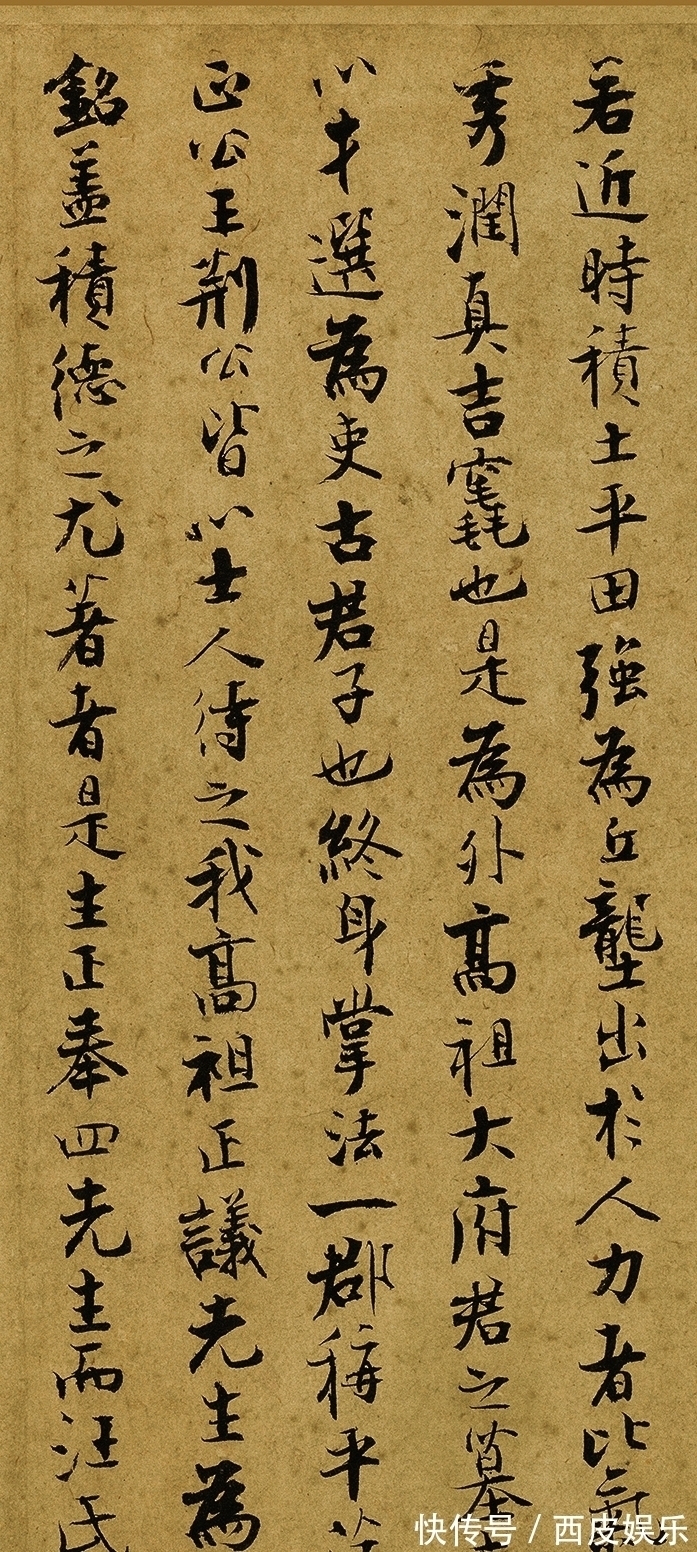 若近時積土平田強為丘壟出於人力者比
秀潤真吉竁也是為外高祖大府君之墓
以才選為吏古君子也終身掌法一郡稱平
正公王荆公皆以士人待之我高祖正議先生為
銘盖積德之尤著者是生正奉四先生而汪氏
快传号 / 西皮娱乐